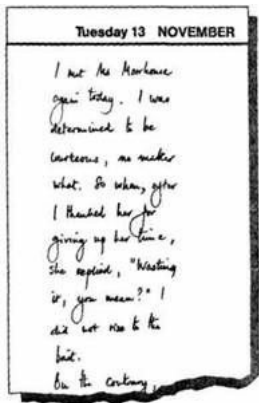 Tuesday 13 NOVEMBER
I met Ms Moorhouse
again today. I was
determined to be
courteous, no matter
what. So when, after
I thanked her for
giving up her time,
she replied, "Wasting
it, you mean?" I
did not rise to the
bait.
On the contrary,